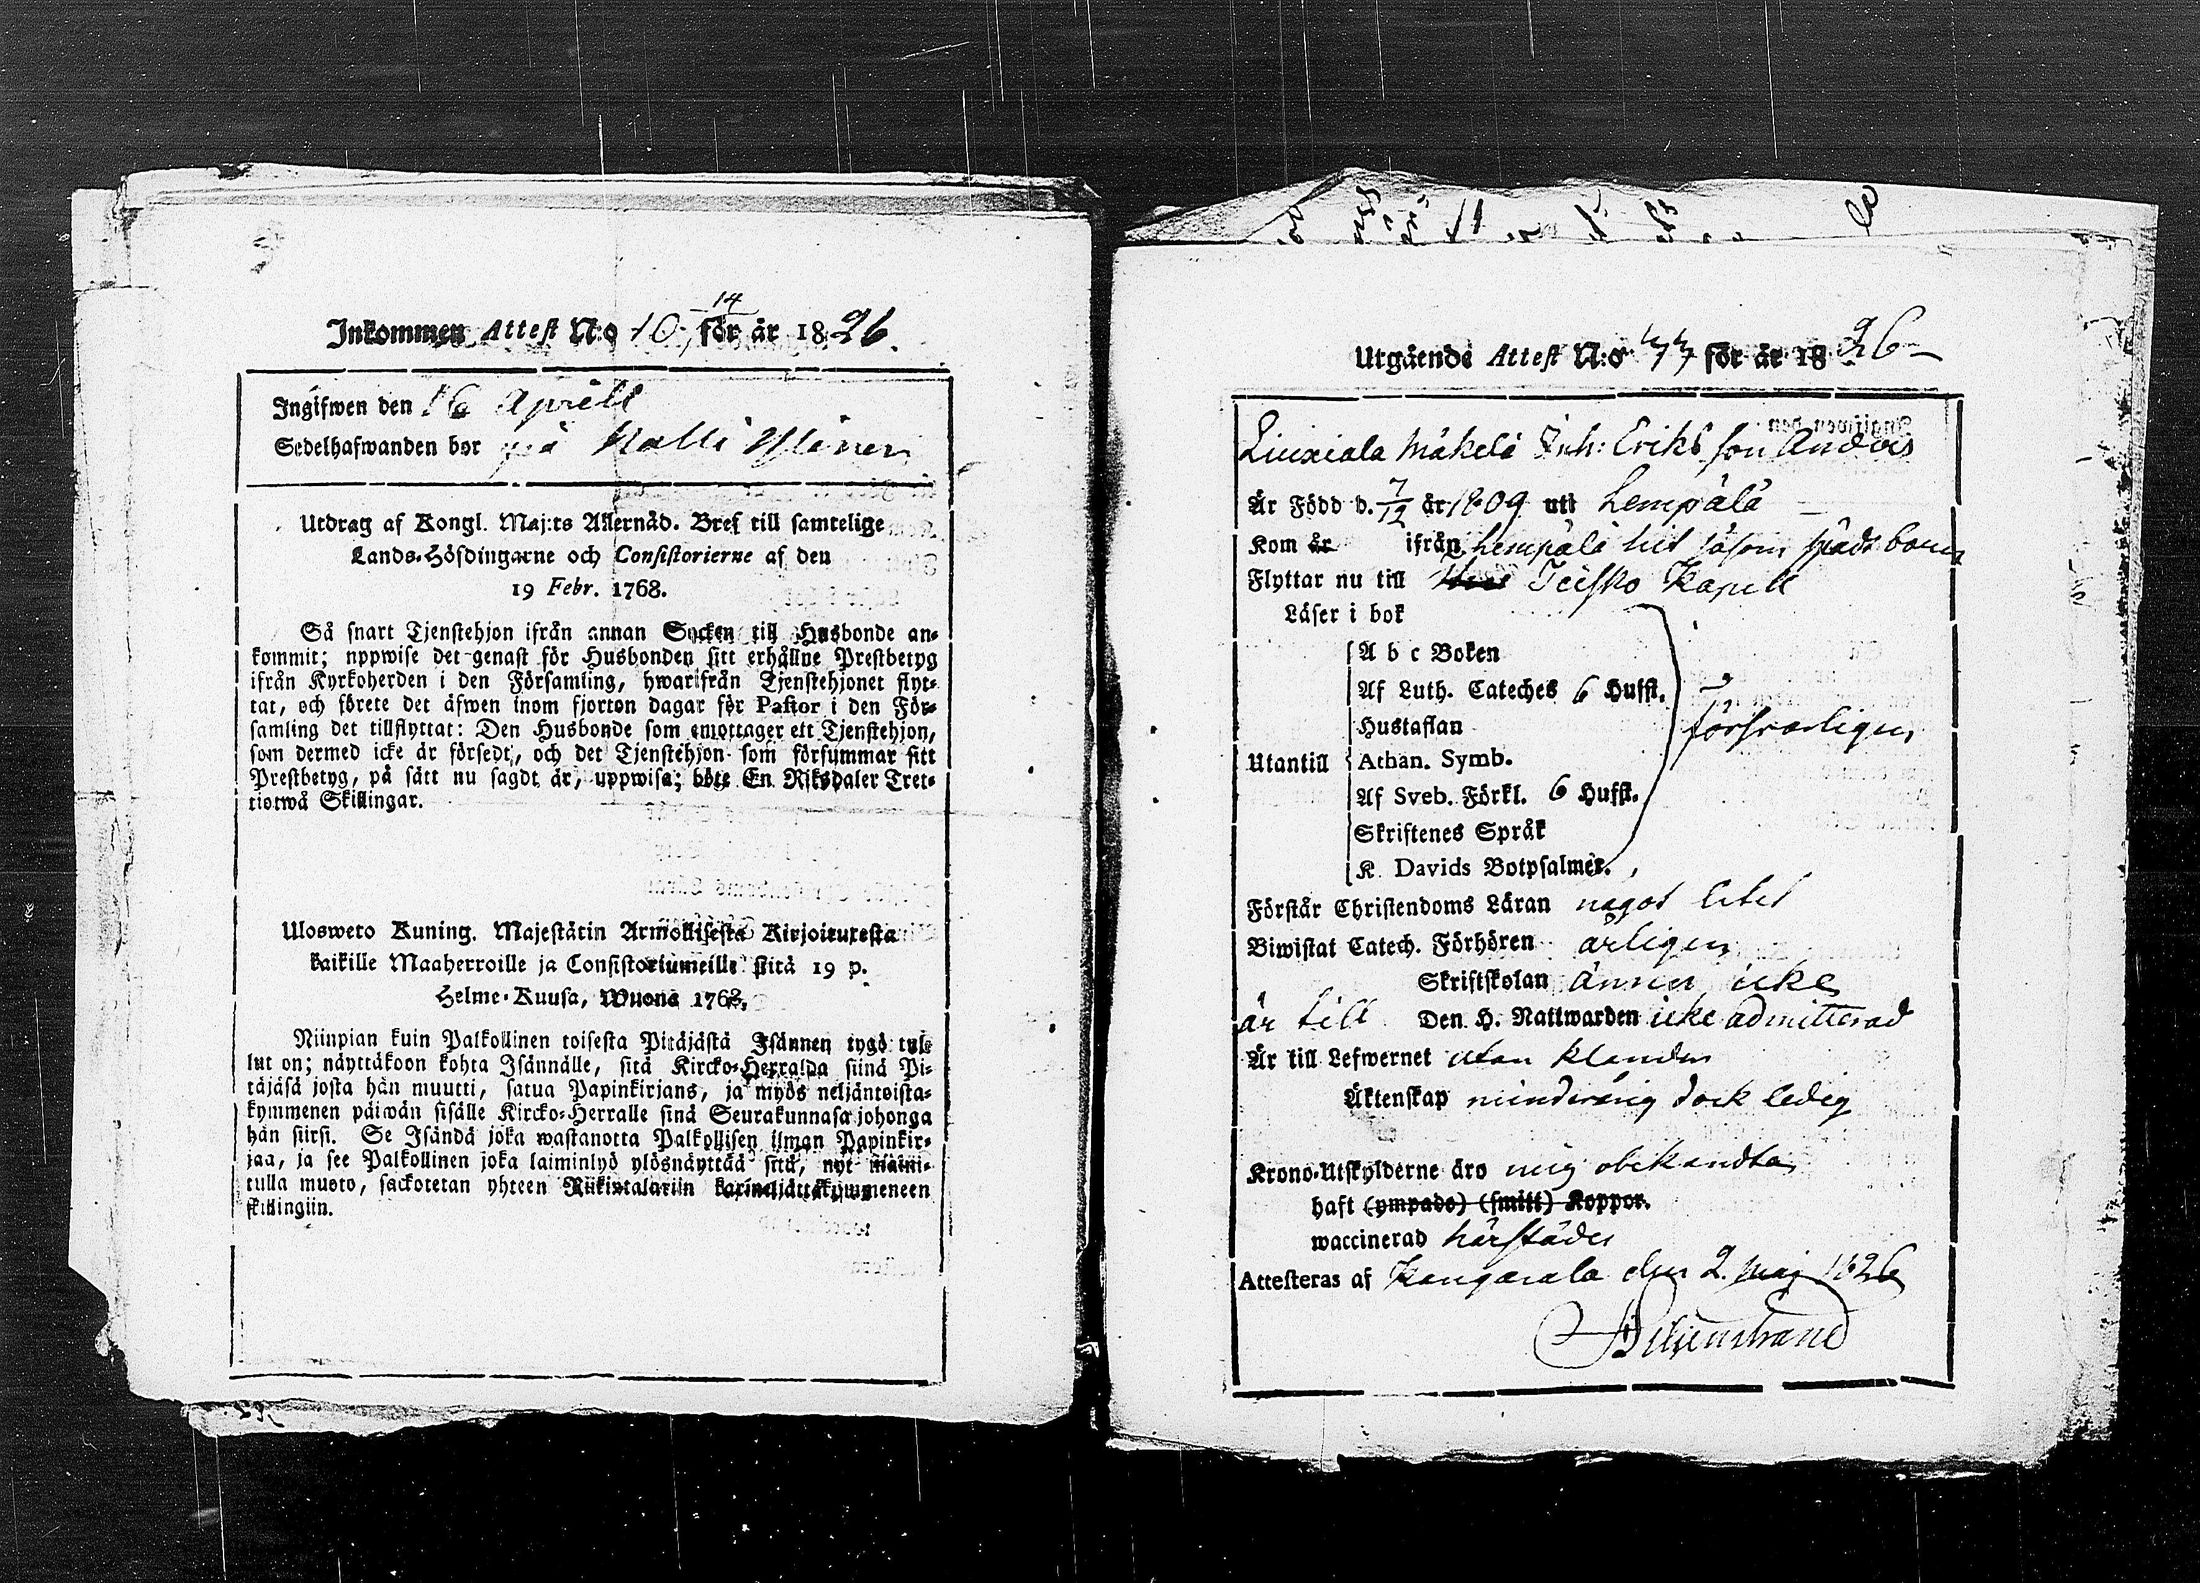 Inkommen Attest N:o 10. 14 för år 1826.
Ingifwen den 16 Aprill
Sedelhafwanden bor på Kalli
Utdrag af Kongl. Maj:ts Allernåd. Bref till samtelige
Lands-Höfdingarne och Consistorierne af den
19 Febr. 1768.
Så snart Tjenstehjon ifrån annan Socken till Husbonde an-
kommit; uppwise det genast för Husbonden sitt erhållne Prestbetyg
ifrån Kyrkoherden i den Församling, hwarifrån Tjenstehjonet flyt-
tat, och förete det äfwen inom fjorton dagar för Pastor i den För-
samling det tillflyttat: Den Husbonde som emottager ett Tjenstehjon,
som dermed icke är försedt, och det Tjenstehjon som försummar sitt
Prestbetyg, på sätt nu sagdt är, uppwisa; böte En Riksdaler Tret-
tiotwå Skillingar.
Ulosweto Kuning. Majestätin Armollisesta Kirjoituxesta
kaikille Maaherroille ja Consistoriumeille siitä 19 p.
Helme-Kuusa, Wuona 1768.
Niinpian kuin Palkollinen toisesta Pitäjästä Isännen tygö tul-
lut on; näyttäkoon kohta Isännälle, sitä Kircko-Herralda siinä Pi-
täjäsä josta hän muutti, saatua Papinkirjans, ja myös neljäntoista-
kymmenen päiwän sisälle Kircko-Herralle siinä Seurakunnasa johonga
hän siirsi. Se Isändä joka wastanotta Palkollisen ilman Papinkir-
jaa, ja see Palkollinen joka laiminlyö ylösnäyttää sitä, nyt maini-
tulla muoto, sackotetan yhteen Riikintalariin kaxineljättäkymmeneen
skillingiin.
Utgående Attest N:o 77 för år 1826
Liuxiala Mäkelä Inh: Eriks son Anders
Är Född d. 7/12 år 1809 uti Lempälä
Kom år ifrån Lempälä hit såsom späds barn
Flyttar nu till Teisko Kapell
Läser i bok
A b c Boken
Af Luth. Cateches 6 Hufst.
Hustaflan försvarligen
Utantill Athan. Symb.
Af Sveb. Förkl. 6 Hufst.
Skriftenes Språk
K. Davids Botpsalmer.
Förstår Christendoms Läran något litet
Biwistat Catech. Förhören årligen
Skriftskolan ännu icke
är till Den H. Nattwarden icke admitterad
Är till Lefwernet utan klander
Äktenskap minderårig dock ledig
Krono-Utskylderne äro mig obekandta
haft (ympade) (smitt) Koppor.
waccinerad härstädes
Attesteras af Kangasala den 2. Maj 1826